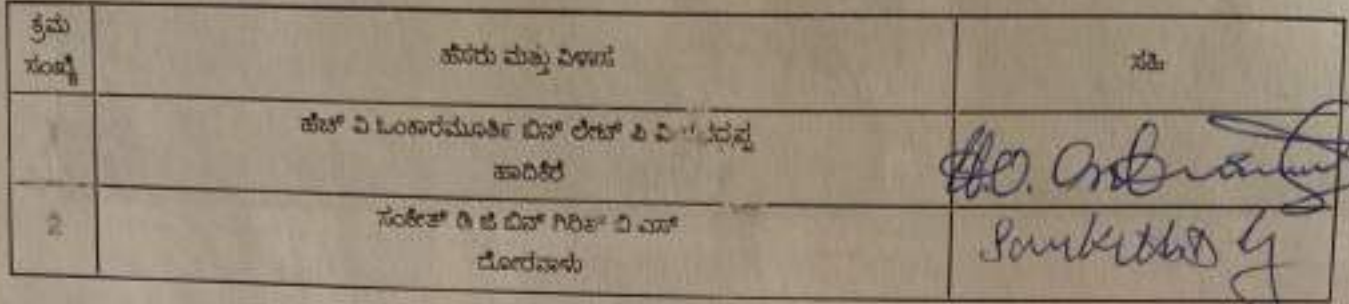 ಕ್ರಮ ಸಂಖ್ಯೆ ಹೆಸರು ಮತ್ತು ವಿಳಾಸ ಸಹಿ
1 ಹೆಚ್ ವಿ ಓಂಕಾರಮೂರ್ತಿ ಬಿನ್ ಲೇಟ್ ಪಿ
ಹಾದಿಕೆರೆ
2 ಸಂಕೇತ್ ಡಿ ಜಿ ಬಿನ್ ಗಿರೀಶ್ ವಿ ಎಸ್ Sanketh D G
ದೋರನಾಳು